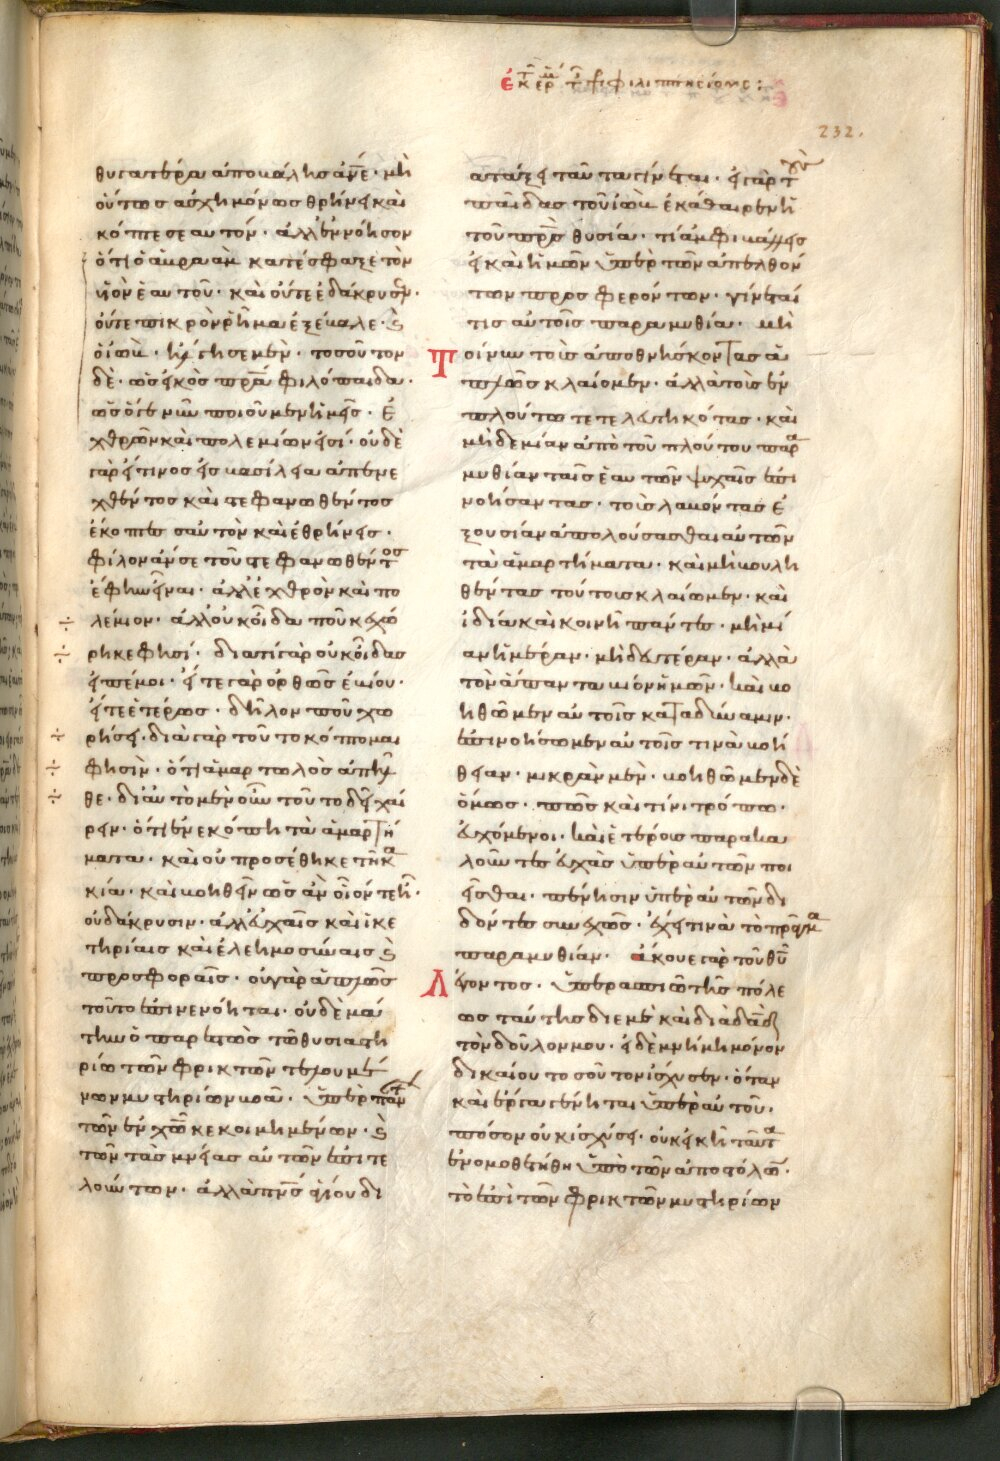 ἐκ τῆς ἑρμ τῆς φιλιππησίους :
232.
θυγατέρα ἀποκαλῆς ἄνε· μὴ
οὕτως ἀσχημόνως θρήνει καὶ
κόπτε σεαυτόν· ἀλλ' ἐννόησον
ὅτι ὁ ἀβραὰμ κατέσφαξε τὸν
υἱὸν ἑαυτοῦ· καὶ οὔτε ἐδάκρυσεν·
οὔτε πικρὸν ῥῆμα ἐξέβαλε· καὶ
ὁ ἰὼβ· ἤλγησε μὲν· τοσοῦτον
δὲ· ὡς εἰκὸς πρα φιλόπαιδα·
ὡς ὅγε νῦν ποιοῦμεν ἡμεῖς· ἐ
χθρῶν καὶ πολεμίων εἰσί· οὐδὲ
γὰρ εἴ τινος εἰς βασίλεια ἀπενε
χθέντος καὶ στεφανωθέντος
ἐκόπτες σαυτὸν καὶ ἐθρήνεις·
φίλον ἄν σε τοῦ στεφανωθέντος
ἔφην εἶναι· ἀλλ' ἐχθρὸν καὶ πο
λέμιον· ἀλλ' οὐκ οἶδα ποῦ κεχώ
ρηκε φησί· διατί γὰρ οὐκ οἶδας
εἰπέ μοι· εἴτε γὰρ ὀρθῶς ἐβίου·
εἴτε ἑτέρως· δῆλον ποῦ χω
ρήσει· διὰ γὰρ τοῦτο κόπτομαι
φησὶν· ὅτι ἁμαρτωλὸς ἀπῆλ
θε· δι' αὐτὸ μὲν οὖν τοῦτο δεῖ χαί
ρειν· ὅτι ἐνεκόπη τὰ ἁμαρτή
ματα· καὶ οὐ προσέθηκε τῆ κα
κία· καὶ βοηθεῖν ὡς ἂν οἷόν τε ἦ·
οὐ δάκρυσιν· ἀλλ' εὐχαῖς καὶ ἱκε
τηρίαις καὶ ἐλεημοσύναις καὶ
προσφοραῖς· οὐ γὰρ ἁπλῶς
τοῦτο ἐπινενόηται· οὐδὲ μά
την ὁ παρεστὼς τῶ θυσιαστη
ρίω τῶν φρικτῶν τελουμέ
νων μυστηρίων βοᾶ· ὑπὲρ πάντων
τῶν ἐν χῶ κεκοιμημένων· καὶ
τῶν τὰς μνείας αὐτῶν ἐπιτε
λούντων· ἀλλὰ πνς ἁγίου δι
ατάξει ταῦτα γίνεται· εἰ γὰρ τοὺς
παῖδας τοῦ ἰὼβ ἐκάθαιρεν ἡ
τοῦ πρς θυσία· τί ἀμφιβάλλεις
εἰ καὶ ἡμῶν ὑπὲρ τῶν ἀπελθόν
των προσφερόντων· γίνεταί
τις αὐτοῖς παραμυθία· μὴ
τοίνυν τοὺς ἀποθνήσκοντας ἁ
πλῶς κλαίομεν· ἀλλὰ τοὺς ἐν
πλούτω τετελευτηκότας· καὶ
μηδεμίαν ἀπὸ τοῦ πλούτου παρα
μυθίαν ταῖς ἑαυτῶν ψυχαῖς ἐπι
νοήσαντας· τοὺς λαβόντας ἐ
ξουσίαν ἀπολούσασθαι αὐτῶν
τὰ ἁμαρτήματα· καὶ μὴ βουλη
θέντας τούτους κλαίωμεν· καὶ
ἰδία καὶ κοινῆ πάντες· μὴ μί
αν ἡμέραν· μὴ δευτέραν· ἀλλὰ
τὸν ἅπαντα βίον ἡμῶν· καὶ βο
ηθῶμεν αὐτοῖς κατὰ δύναμιν·
ἐπινοήσωμεν αὐτοῖς τινὰ βοή
θειαν· μικρὰν μὲν· βοηθῶμεν δὲ
ὅμως· πῶς καὶ τίνι τρόπω·
εὐχόμενοι· καὶ ἑτέρους παρακα
λοῦντες εὐχὰς ὑπὲρ αὐτῶν ποι
εῖσθαι· πένησιν ὑπὲρ αὐτῶν δι
δόντες συνεχῶς· ἔχει τινὰ τὸ πρᾶγμα
παραμυθίαν· ἄκουε γὰρ τοῦ θῦ
λέγοντος· ὑπερασπιῶ τῆς πόλε
ως ταύτης δι' ἐμὲ καὶ διὰ δαδ
τὸν δοῦλον μου· εἰ δὲ μνήμη μόνον
δικαίου τοσοῦτον ἴσχυσεν· ὅταν
καὶ ἔργα γένηται ὑπὲρ αὐτοῦ·
πόσον οὐκ ἰσχύσει· οὐκ εἰκῆ ταῦτα
ἐνομοθετήθη ὑπὸ τῶν ἀποστόλων·
τὸ ἐπὶ τῶν φρικτῶν μυστηρίων